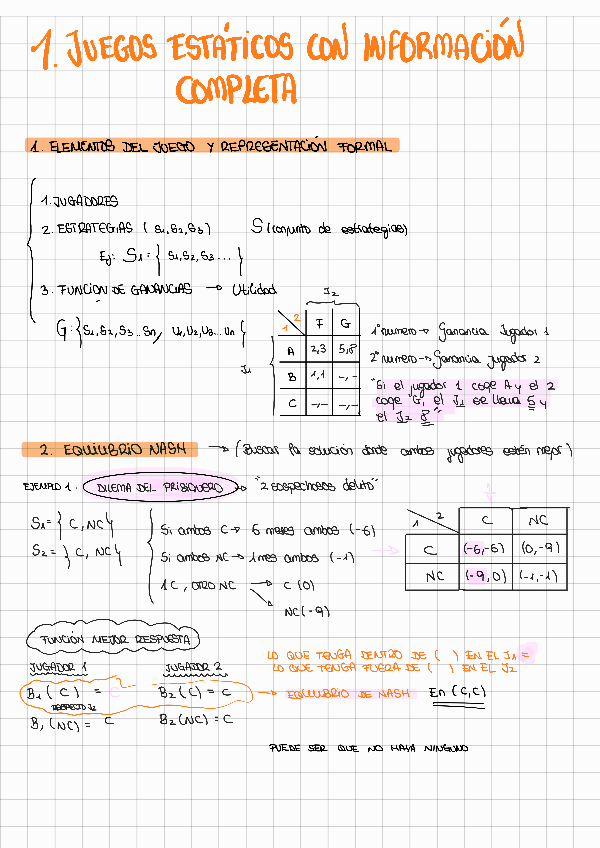 1. JUEGOS ESTÁTICOS CON INFORMACIÓN
COMPLETA
1. ELEMENTOS DEL JUEGO Y REPRESENTACIÓN FORMAL
1. JUGADORES
2. ESTRATEGIAS ( S1, S2, S3 ) S (conjunto de estrategias)
Ej: S1 = { S1, S2, S3 ... }
3. FUNCIÓN DE GANANCIAS → Utilidad
G: { S1, S2, S3 ... Sn, U1, U2, U3 ... Un }
J2
1 2 F G
J1
A 2,3 5,8
B 1,1 -,-
C -,- -,-
1º numero → Ganancia Jugador 1
2º numero → Ganancia jugador 2
"Si el jugador 1 coge A y el 2
coge G, el J1 se lleva 5 y
el J2 8"
2. EQUILIBRIO NASH → (Buscar la solución donde ambos jugadores estén mejor)
EJEMPLO 1. DILEMA DEL PRISIONERO → "2 sospechosos delito"
S1 = { C, NC }
S2 = { C, NC }
Si ambos C → 6 meses ambos (-6)
Si ambos NC → 1 mes ambos (-1)
1 C, OTRO NC → C (0)
NC (-9)
1 2 C NC
C (-6,-6) (0,-9)
NC (-9,0) (-1,-1)
FUNCIÓN MEJOR RESPUESTA
LO QUE TENGA DENTRO DE ( ) EN EL J1 =
LO QUE TENGA FUERA DE ( ) EN EL J2
JUGADOR 1 JUGADOR 2
B1 (C) = C B2 (C) = C → EQUILIBRIO DE NASH En (C,C)
RESPECTO J2
B1 (NC) = C B2 (NC) = C
PUEDE SER QUE NO HAYA NINGUNO